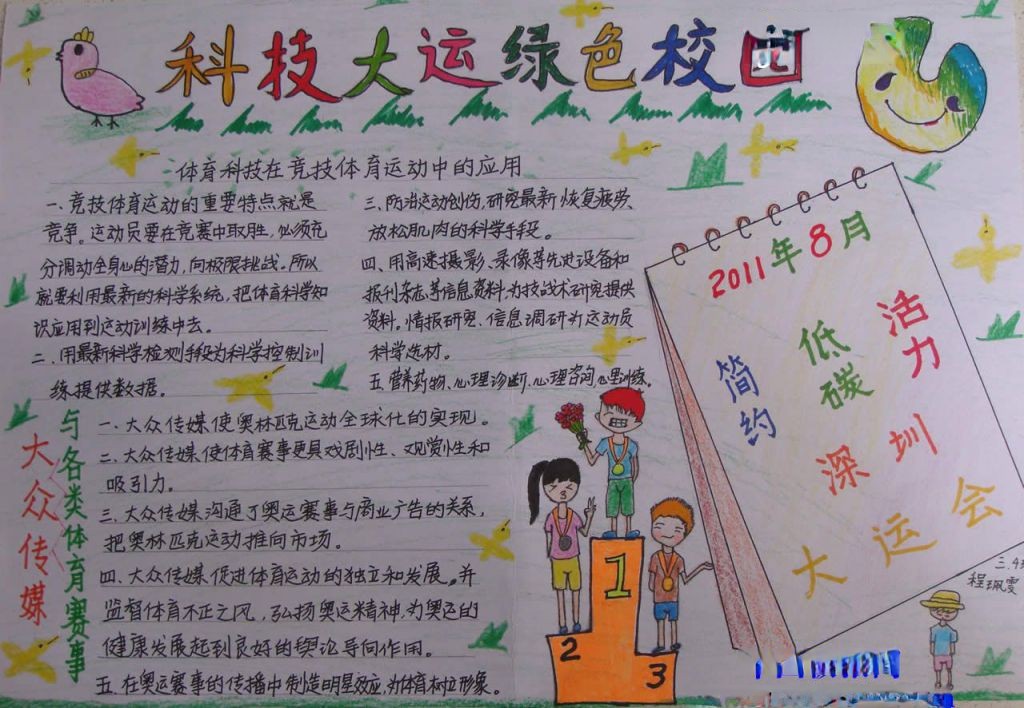 科技大运绿色校园
体育科技在竞技体育运动中的应用
一、竞技体育运动的重要特点就是
竞争。运动员要在竞赛中取胜，必须充
分调动全身心的潜力，向极限挑战。所以
就要利用最新的科学系统，把体育科学知
识应用到运动训练中去。
二、用最新科学检测手段为科学控制训
练提供数据。
三、防治运动创伤，研究最新恢复疲劳、
放松肌肉的科学手段。
四、用高速摄影、录像等先进设备和
报刊杂志等信息资料，为技战术研究提供
资料。情报研究、信息调研为运动员
科学选材。
五、营养药物、心理诊断、心理咨询、心理训练。
大众传媒
与各类体育赛事
一、大众传媒使奥林匹克运动全球化的实现。
二、大众传媒使体育赛事更具戏剧性、观赏性和
吸引力。
三、大众传媒沟通了奥运赛事与商业广告的关系，
把奥林匹克运动推向市场。
四、大众传媒促进体育运动的独立和发展。并
监督体育不正之风，弘扬奥运精神，为奥运的
健康发展起到良好的舆论导向作用。
五、在奥运赛事的传播中制造明星效应，为体育树立形象。
2011年8月
简约
低碳
活力
深圳
大运会
三.4班
程珮雯
1
2
3